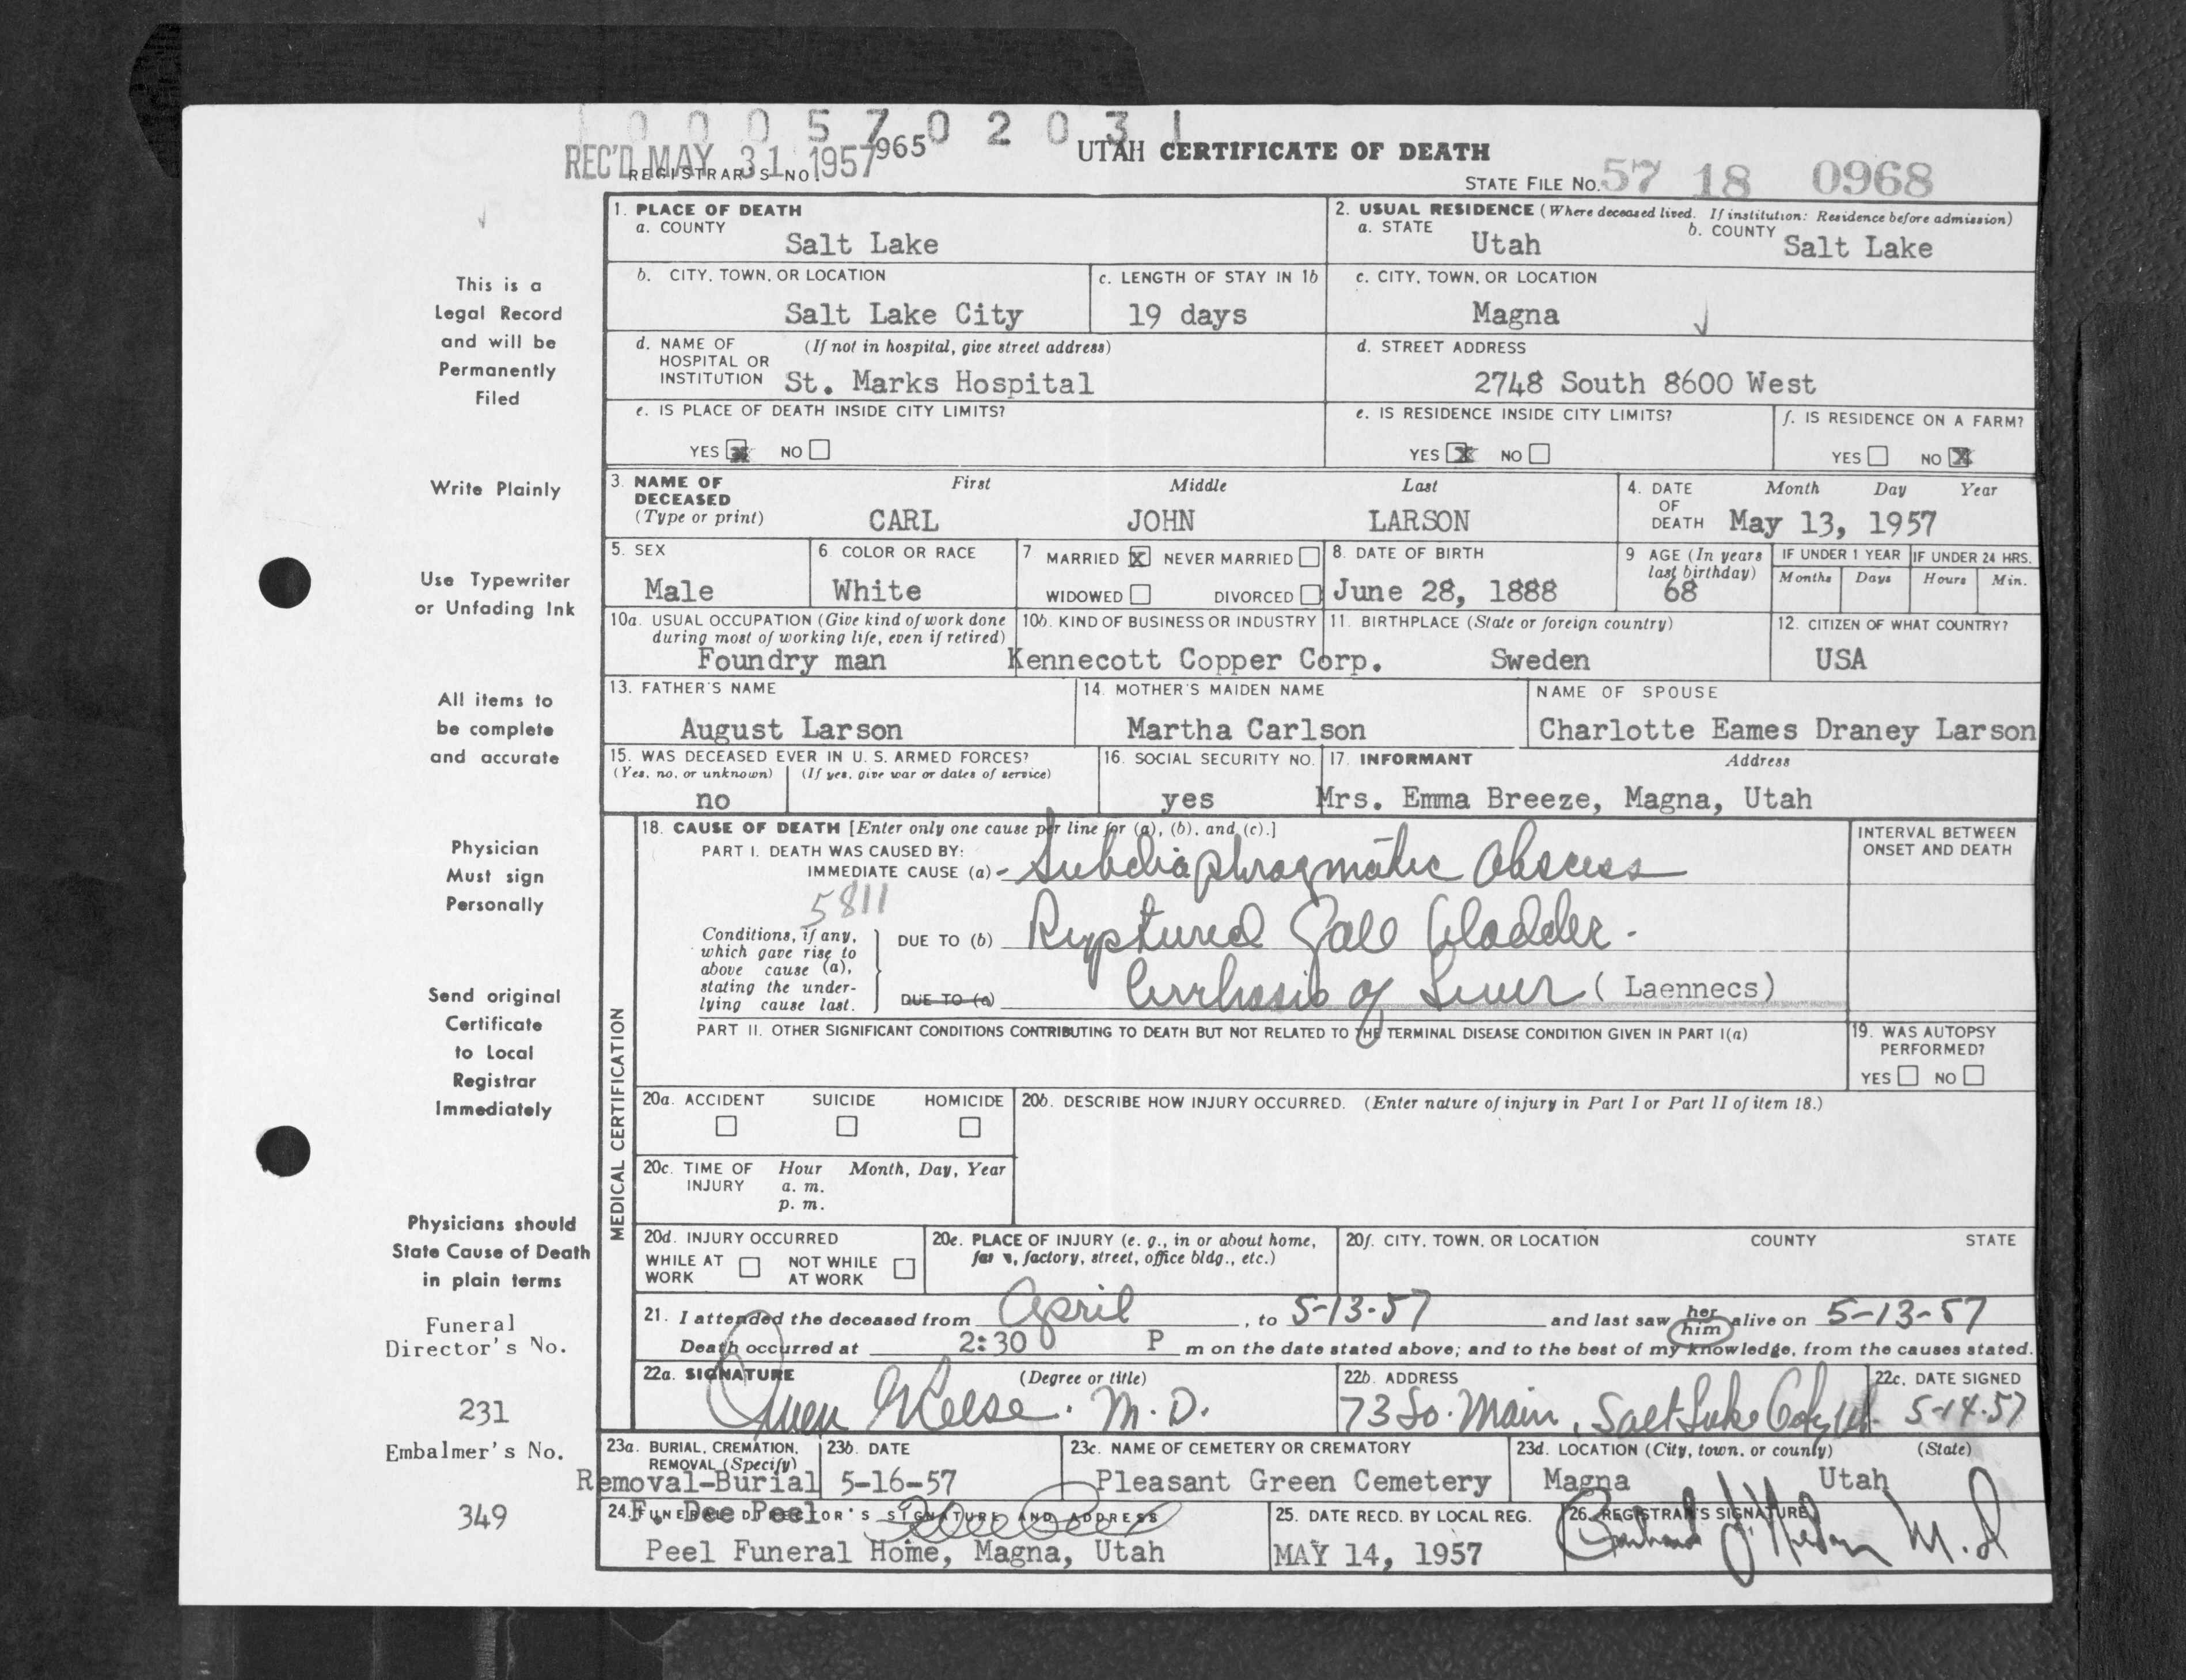 1 0 0 0 5 7 0 2 0 3 1
REC'D MAY 31 1957
REGISTRAR'S NO. 965
UTAH CERTIFICATE OF DEATH
STATE FILE NO. 57 18 0968
This is a
Legal Record
and will be
Permanently
Filed
Write Plainly
Use Typewriter
or Unfading Ink
All items to
be complete
and accurate
Physician
Must sign
Personally
Send original
Certificate
to Local
Registrar
Immediately
Physicians should
State Cause of Death
in plain terms
Funeral
Director's No.
231
Embalmer's No.
349
1. PLACE OF DEATH
a. COUNTY
Salt Lake
2. USUAL RESIDENCE (Where deceased lived. If institution: Residence before admission)
a. STATE Utah b. COUNTY Salt Lake
b. CITY, TOWN, OR LOCATION
Salt Lake City
c. LENGTH OF STAY IN 1b
19 days
c. CITY, TOWN, OR LOCATION
Magna
d. NAME OF (If not in hospital, give street address)
HOSPITAL OR
INSTITUTION St. Marks Hospital
d. STREET ADDRESS
2748 South 8600 West
e. IS PLACE OF DEATH INSIDE CITY LIMITS?
YES X NO
e. IS RESIDENCE INSIDE CITY LIMITS?
YES X NO
f. IS RESIDENCE ON A FARM?
YES NO X
3. NAME OF First Middle Last
DECEASED
(Type or print) CARL JOHN LARSON
4. DATE Month Day Year
OF
DEATH May 13, 1957
5. SEX
Male
6. COLOR OR RACE
White
7 MARRIED X NEVER MARRIED
WIDOWED DIVORCED
8. DATE OF BIRTH
June 28, 1888
9 AGE (In years
last birthday)
68
IF UNDER 1 YEAR
Months Days
IF UNDER 24 HRS.
Hours Min.
10a. USUAL OCCUPATION (Give kind of work done
during most of working life, even if retired)
Foundry man
10b. KIND OF BUSINESS OR INDUSTRY
Kennecott Copper Corp.
11. BIRTHPLACE (State or foreign country)
Sweden
12. CITIZEN OF WHAT COUNTRY?
USA
13. FATHER'S NAME
August Larson
14. MOTHER'S MAIDEN NAME
Martha Carlson
NAME OF SPOUSE
Charlotte Eames Draney Larson
15. WAS DECEASED EVER IN U. S. ARMED FORCES?
(Yes, no, or unknown) (If yes, give war or dates of service)
no
16. SOCIAL SECURITY NO.
yes
17. INFORMANT Address
Mrs. Emma Breeze, Magna, Utah
MEDICAL CERTIFICATION
18. CAUSE OF DEATH [Enter only one cause per line for (a), (b), and (c).]
PART I. DEATH WAS CAUSED BY:
IMMEDIATE CAUSE (a) - Subdiaphragmatic Abscess
5811
Conditions, if any,
which gave rise to
above cause (a),
stating the under-
lying cause last.
DUE TO (b) Ruptured Gall bladder.
DUE TO (c) Cirrhosis of Liver (Laennecs)
INTERVAL BETWEEN
ONSET AND DEATH
PART II. OTHER SIGNIFICANT CONDITIONS CONTRIBUTING TO DEATH BUT NOT RELATED TO THE TERMINAL DISEASE CONDITION GIVEN IN PART I(a)
19. WAS AUTOPSY
PERFORMED?
YES NO
20a. ACCIDENT SUICIDE HOMICIDE
20b. DESCRIBE HOW INJURY OCCURRED. (Enter nature of injury in Part I or Part II of item 18.)
20c. TIME OF Hour Month, Day, Year
INJURY a. m.
p. m.
20d. INJURY OCCURRED
WHILE AT NOT WHILE
WORK AT WORK
20e. PLACE OF INJURY (e. g., in or about home,
farm, factory, street, office bldg., etc.)
20f. CITY, TOWN, OR LOCATION COUNTY STATE
21. I attended the deceased from April, to 5-13-57 and last saw her him alive on 5-13-57
Death occurred at 2:30 P m on the date stated above; and to the best of my knowledge, from the causes stated.
22a. SIGNATURE (Degree or title)
Owen Reese. M.D.
22b. ADDRESS
73 So. Main, Salt Lake City Ut.
22c. DATE SIGNED
5-14-57
23a. BURIAL, CREMATION,
REMOVAL (Specify)
Removal-Burial
23b. DATE
5-16-57
23c. NAME OF CEMETERY OR CREMATORY
Pleasant Green Cemetery
23d. LOCATION (City, town, or county) (State)
Magna Utah
24. FUNERAL DIRECTOR'S SIGNATURE AND ADDRESS
F. Dee Peel
Peel Funeral Home, Magna, Utah
25. DATE RECD. BY LOCAL REG.
MAY 14, 1957
26. REGISTRAR'S SIGNATURE
M.D